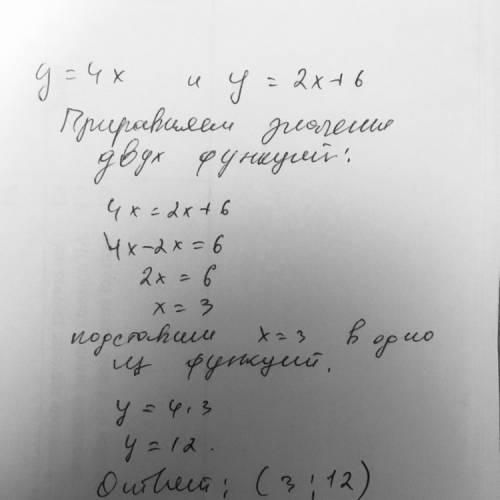 y = 4x и y = 2x+6
Приравняем значения
двух функций:
4x = 2x+6
4x-2x = 6
2x = 6
x = 3
подставим x=3 в одно
из функций.
y = 4·3
y = 12.
Ответ: (3;12)